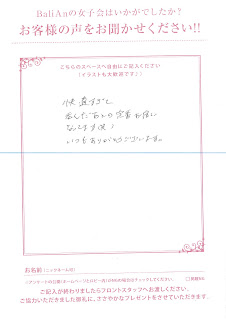 BaliAnの女子会はいかがでしたか?
お客様の声をお聞かせください!!
こちらのスペースへ自由にご記入ください
(イラストも大歓迎です♪)
快適すぎて
なってます笑!
いつもありがとうございます。
お名前(ニックネーム可)
ご記入が終わりましたらフロントスタッフへお渡しください。
ご協力いただきました御礼に、ささやかなプレゼントをさせていただきます。